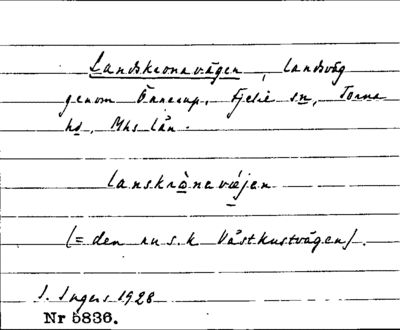 Landskronavägen, landsväg
genom Önnerup, Fjelie sn, Torna
hd, Mhs län.
lanskrònavæjen
(= den nu s.k Västkustvägen).
I. Ingers 1928
Nr 5836.